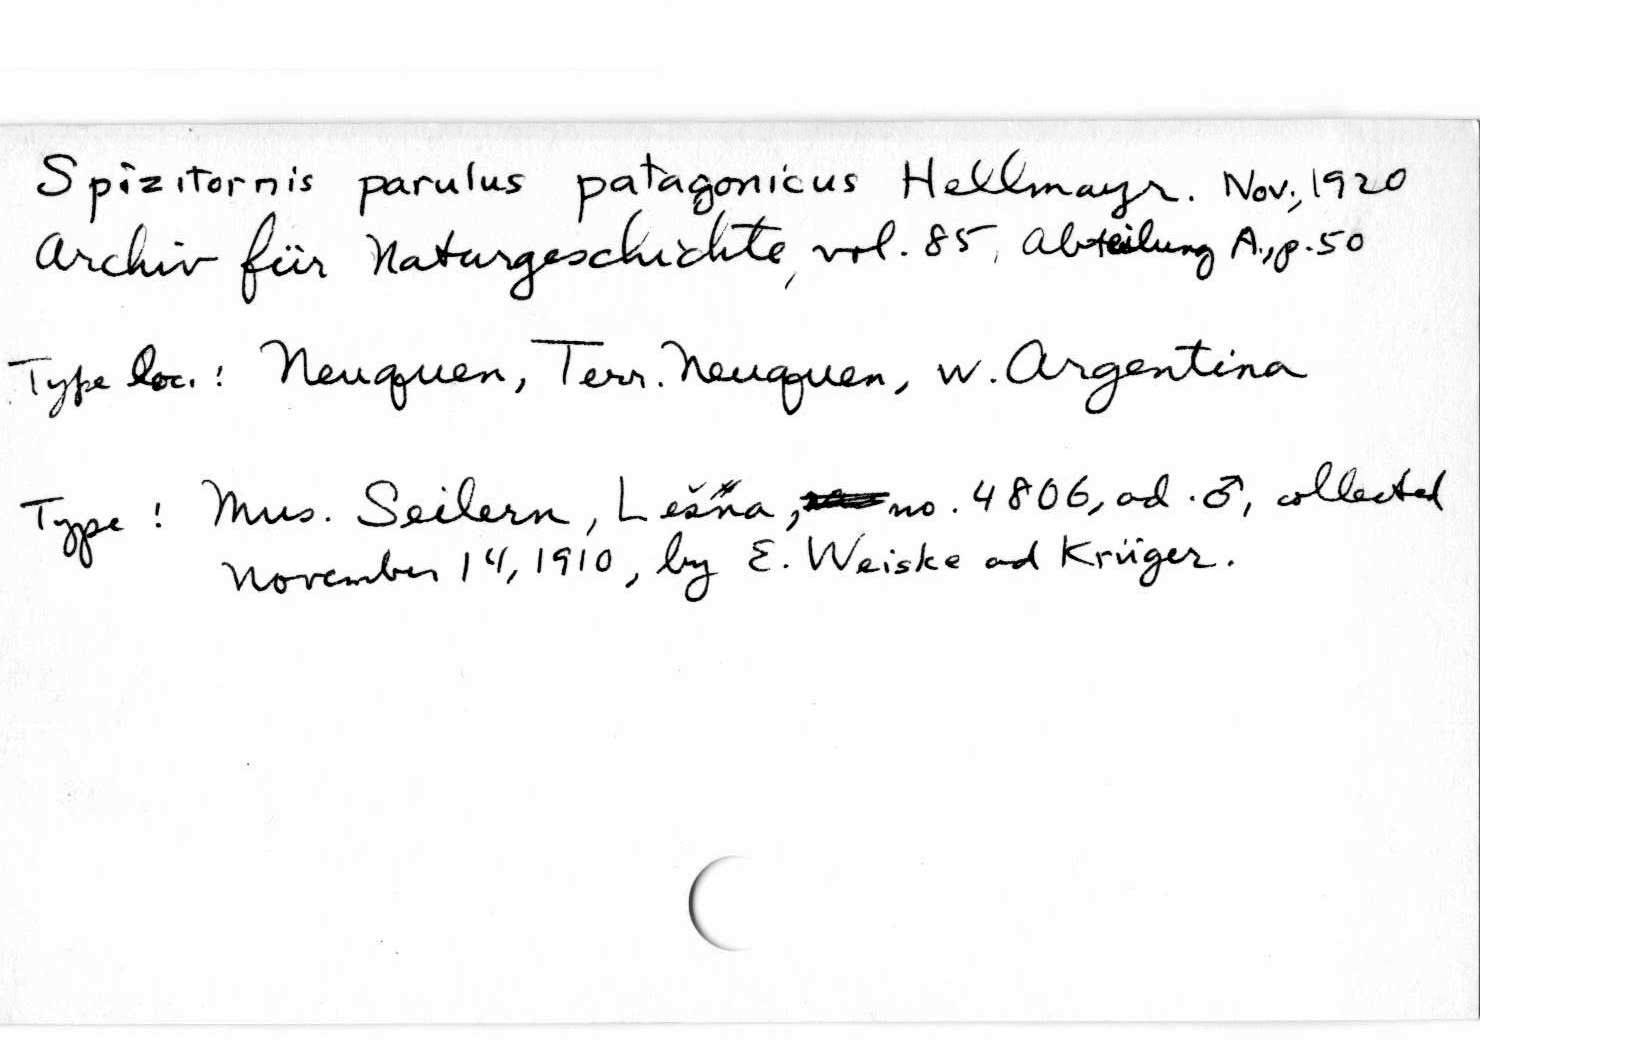 Spizitornis parulus patagonicus Hellmayr. Nov., 1920
Archiv für Naturgeschichte, vol. 85, Abteilung A., p. 50
Type loc. : Neuquen, Terr. Neuquen, w. Argentina
Type : Mus. Seilern, Lešna, no. 4806, ad. ♂, collected
November 14, 1910, by E. Weiske ad Krüger.